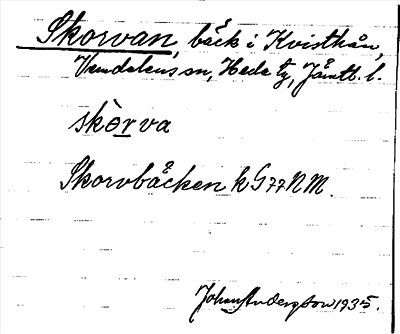 Skorvan, bäck i Kvisthån,
Vemdalens sn, Hede tg, Jämtl. l.
skòrva
Skorvbäcken k G77NM.
Johan Andersson 1935.